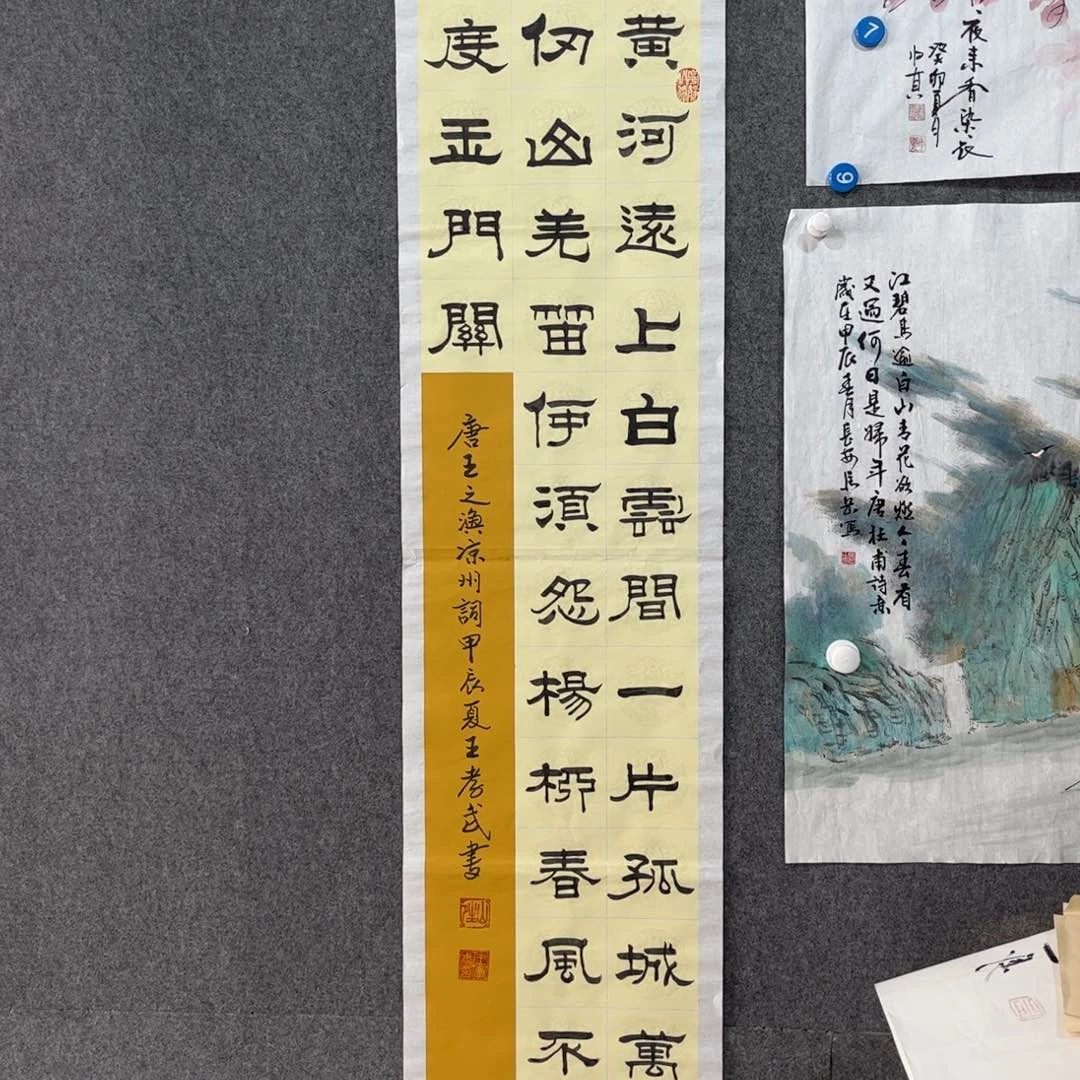 夜来香染衣
癸卯夏月
江碧鳥逾白山青花欲燃今春看
又過何日是歸年唐杜甫詩意
歲在甲辰春月長安
黄河遠上白雲間一片孤城萬
仞山羌笛伊須怨楊柳春風不
度玉門關
唐王之渙凉州詞甲辰夏王孝武書
7
9